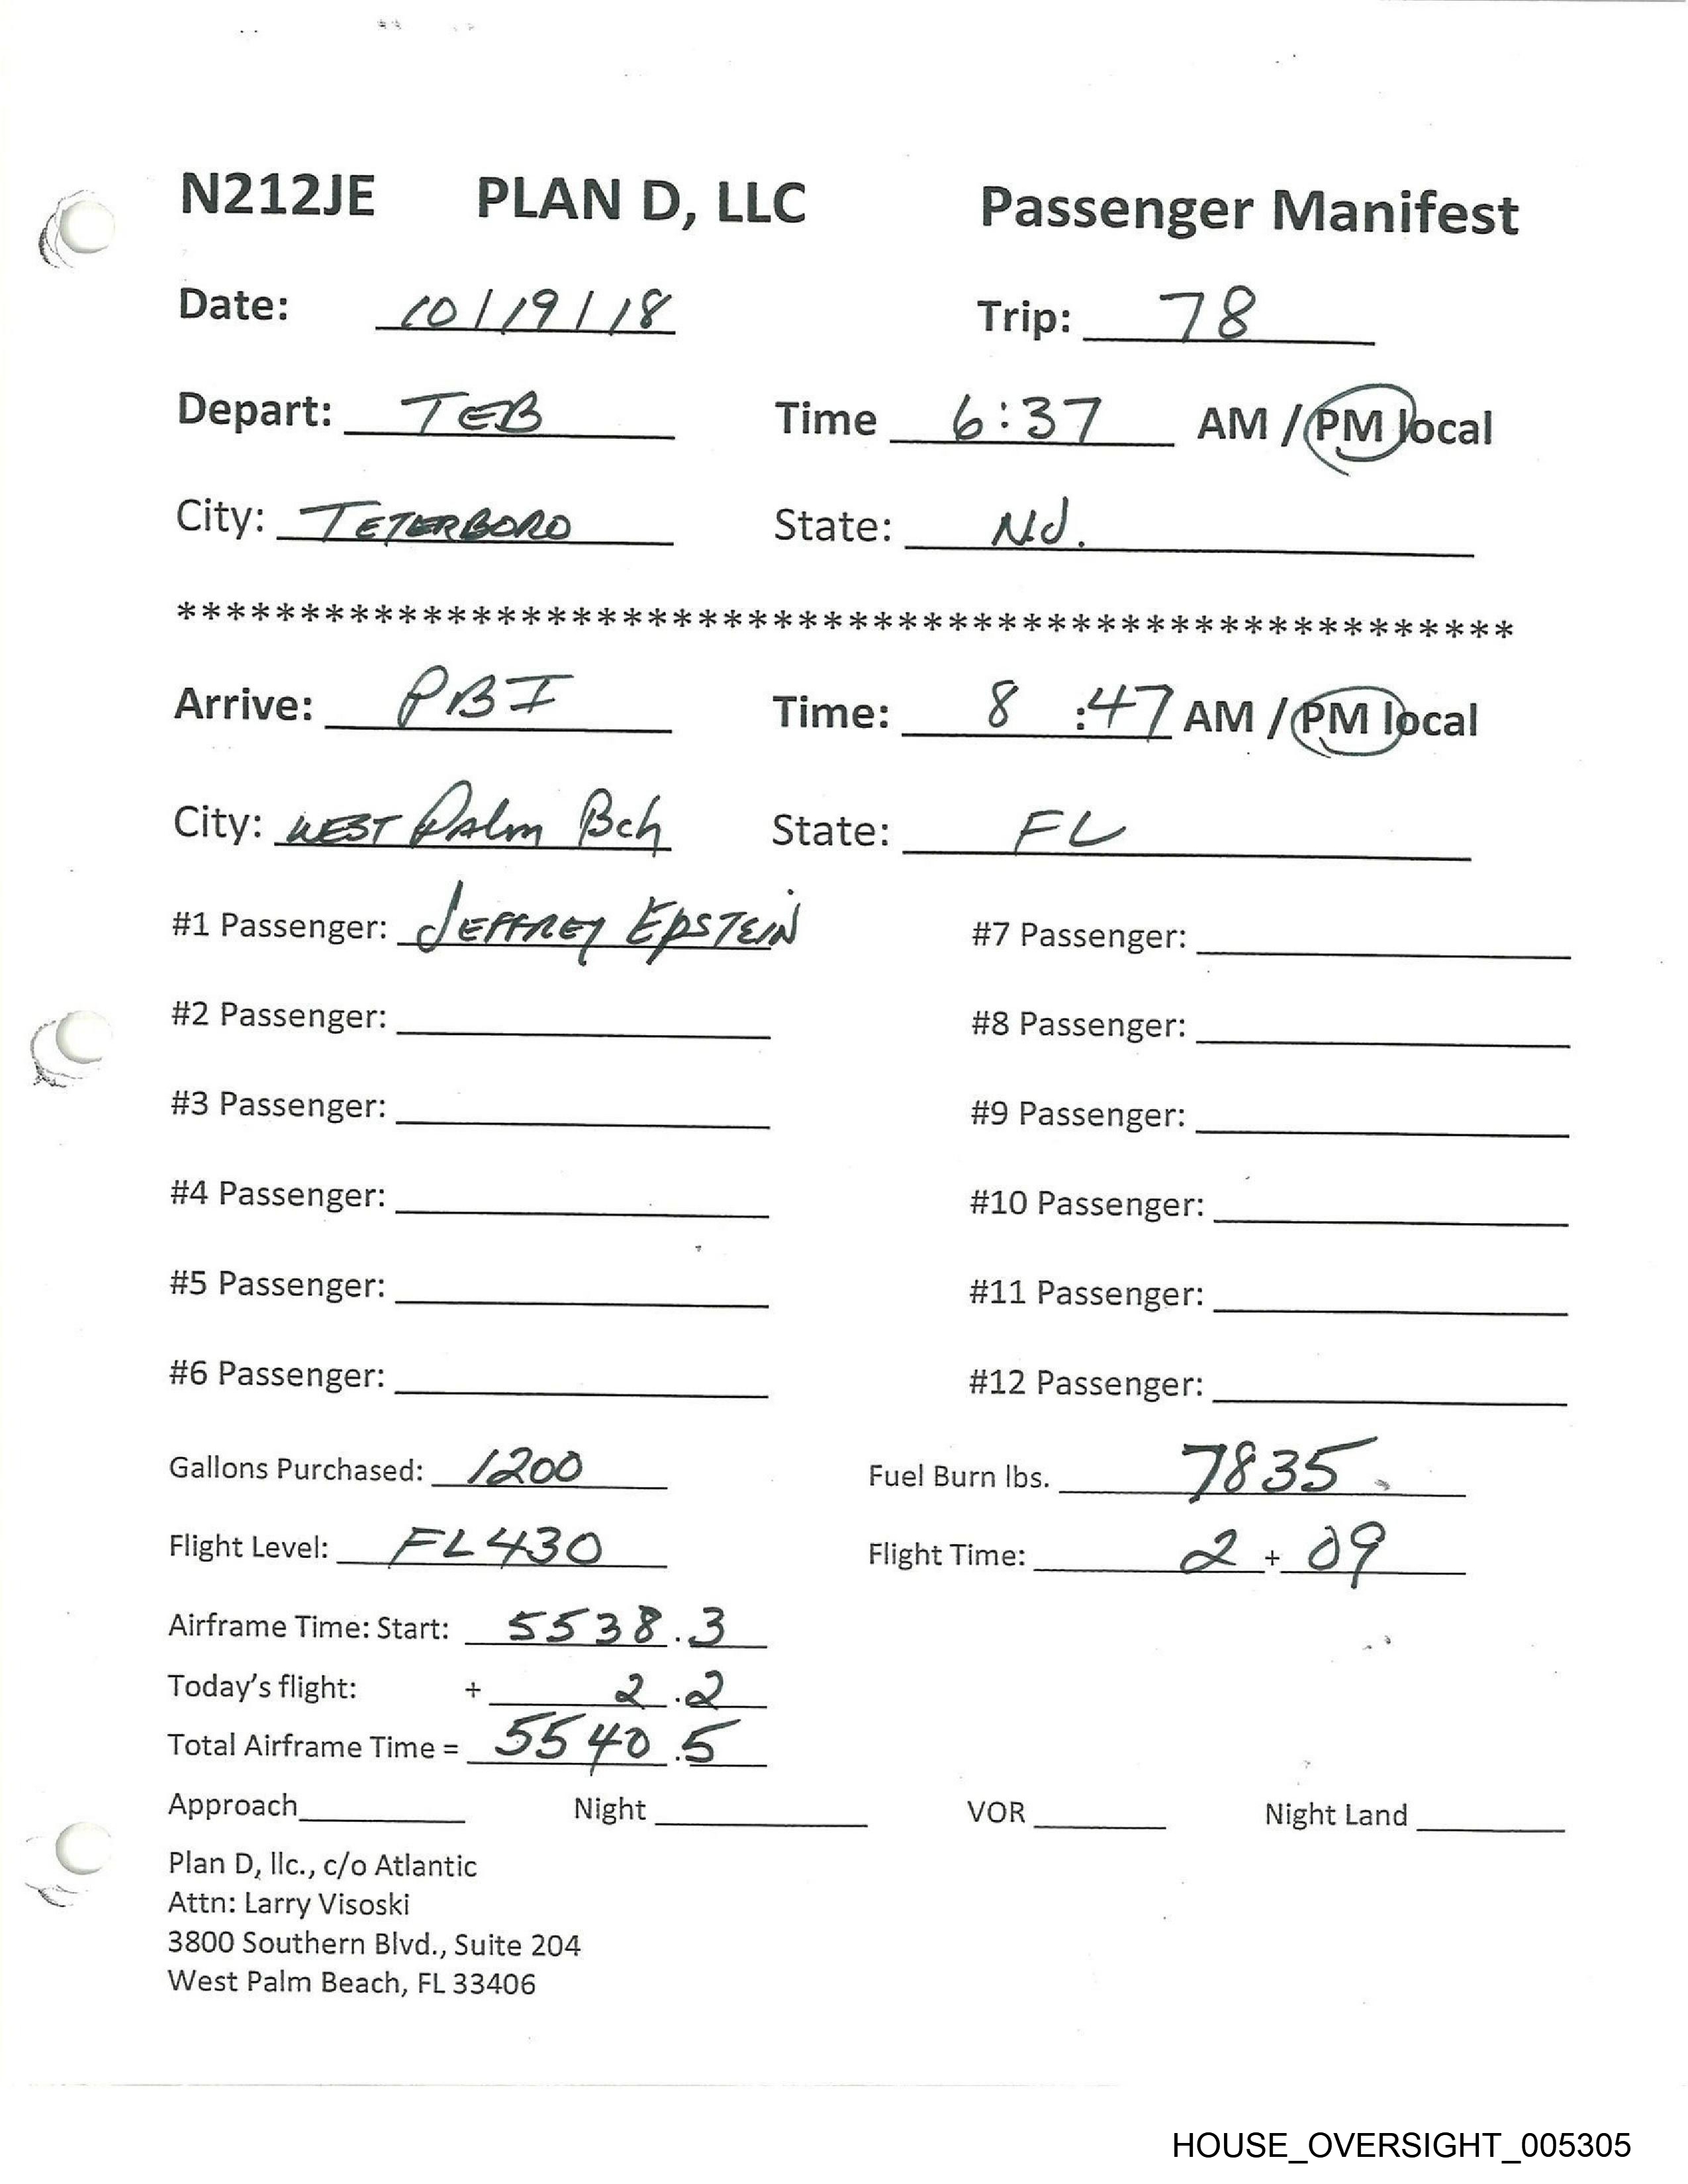 N212JE PLAN D, LLC Passenger Manifest
Date: 10/19/18 Trip: 78
Depart: TEB Time 6:37 AM / PM local
City: TETERBORO State: NJ.
******************************************************
Arrive: PBI Time: 8 :47 AM / PM local
City: WEST PAlm Bch State: FL
#1 Passenger: JEFFREY EPSTEIN #7 Passenger:
#2 Passenger: #8 Passenger:
#3 Passenger: #9 Passenger:
#4 Passenger: #10 Passenger:
#5 Passenger: #11 Passenger:
#6 Passenger: #12 Passenger:
Gallons Purchased: 1200 Fuel Burn lbs. 7835.
Flight Level: FL430 Flight Time: 2 + 09
Airframe Time: Start: 5538.3
Today's flight: + 2.2
Total Airframe Time = 5540.5
Approach Night VOR Night Land
Plan D, llc., c/o Atlantic
Attn: Larry Visoski
3800 Southern Blvd., Suite 204
West Palm Beach, FL 33406
HOUSE_OVERSIGHT_005305